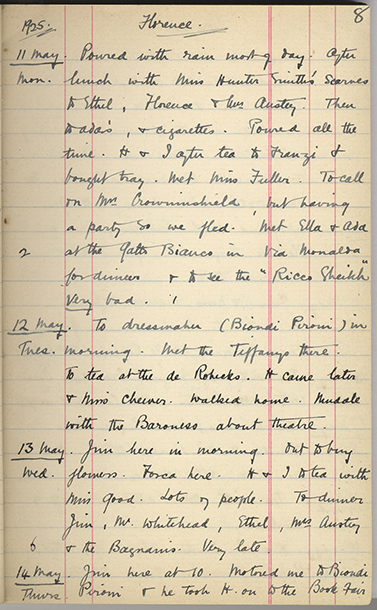 1925. Florence. 8
11 May. Poured with rain most of day. After
Mon. lunch with Miss Hunter Smith's Scarves
to Ethel, Florence & Mrs Austey. Then
to Ada's, & cigarettes. Poured all the
time. H & I after tea to Franzi &
bought tray. Met Miss Fuller. To call
on Mrs. Crowninshield, but having
a party so we fled. Met Ella & Ada
2 at the Gatto Bianco in Via Monalda
for dinner & to see the "Ricco Sheikh"
Very bad.
12 May. To dressmaker (Biondi Pironi) in
Tues. morning. Met the Tiffanys there.
to tea at the de Robecks. H came later
& Miss Cheever. Walked home.
with the Baroness about theatre.
13 May. Jim here in morning. Out to buy
Wed. flowers. Forca here. H & I to tea with
Miss Good. Lots of people. To dinner
Jim, Mr. Whitehead, Ethel, Mrs Austey
6 & the Bagnanis. Very late.
14 May. Jim here at 10. Motored me to Biondi
Thurs Pironi & he took H. on to the Book Fair